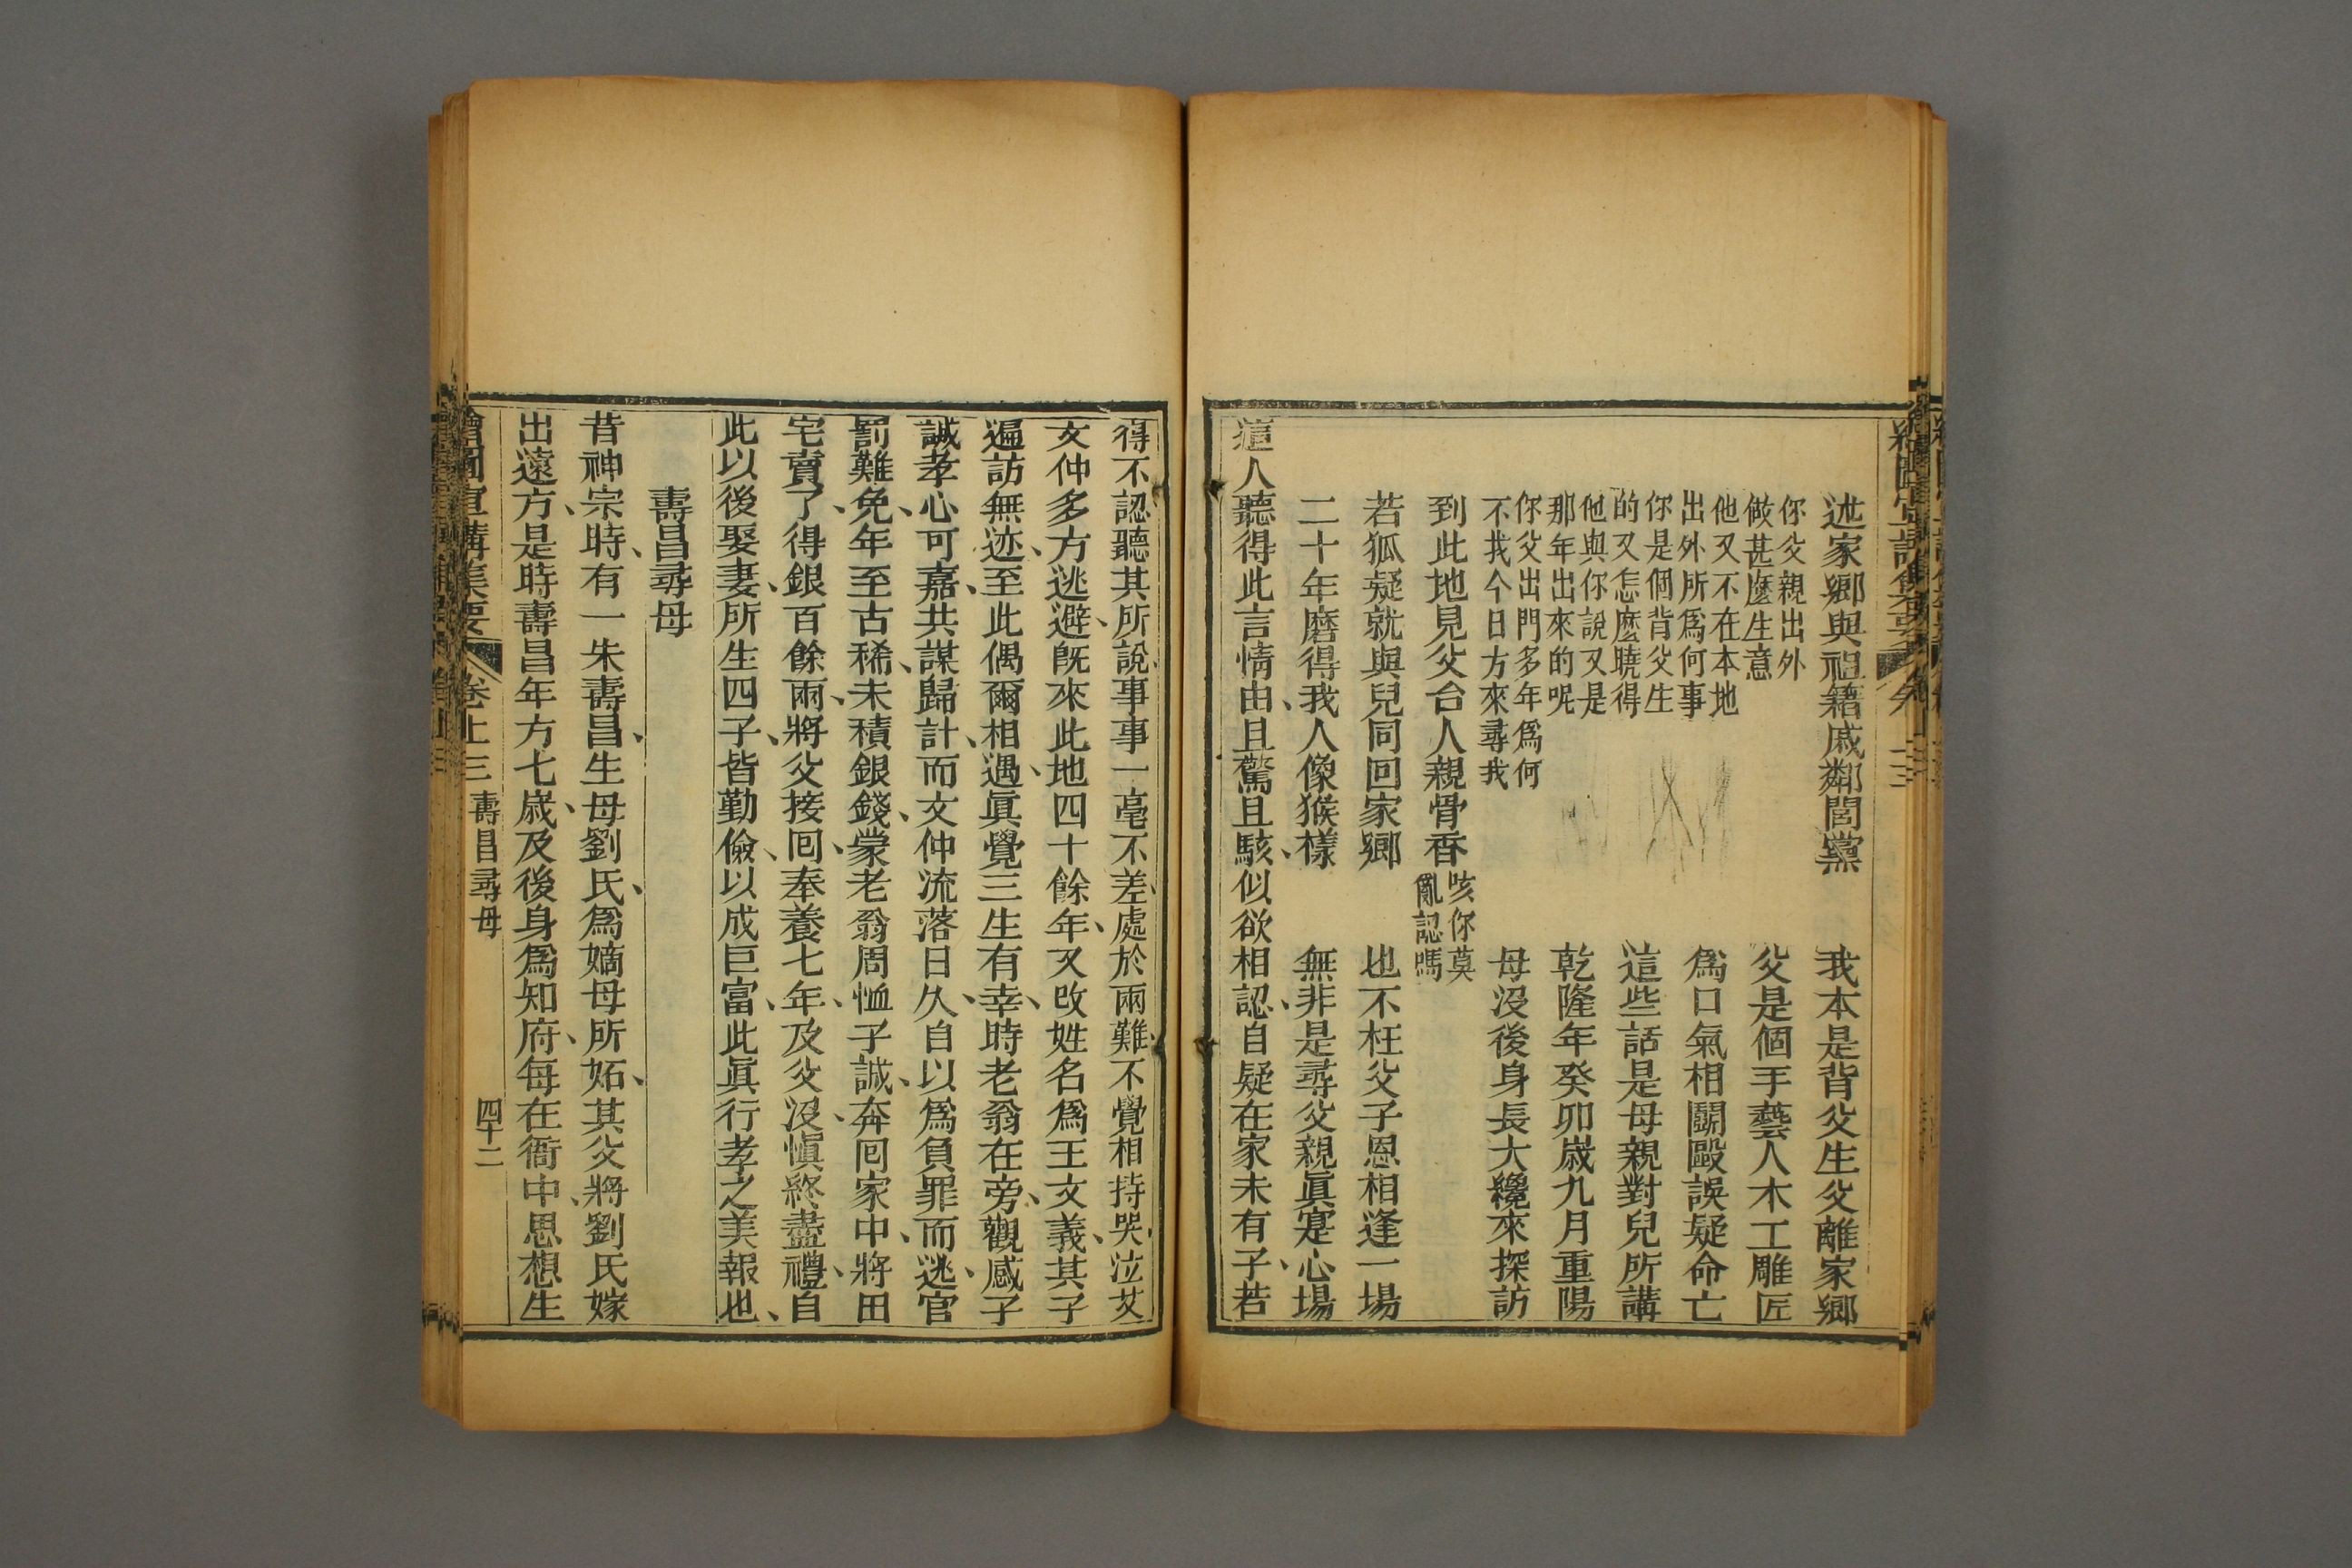 述家鄉與祖籍戚鄰閭黨　我本是背父生父離家鄉
你父親出外
做甚麼生意
父是個手藝人木工雕匠
他又不在本地
出外所爲何事
爲口氣相鬬毆誤疑命亡
你是個背父生
的又怎麼曉得
這些話是母親對兒所講
他與你說又是
那年出來的呢
乾隆年癸卯歲九月重陽
你父出門多年爲何
不找今日方來尋我
母沒後身長大纔來探訪
到此地見父台人親骨香
咳你莫
亂認嗎
若狐疑就與兒同回家鄉　也不枉父子恩相逢一場
二十年磨得我人像猴樣　無非是尋父親眞寔心場
這人聽得此言情由、且驚且駭、似欲相認、自疑在家未有子、若
得不認聽其所說、事事一毫不差、處於兩難、不覺相持哭泣、艾
文仲多方逃避、旣來此地四十餘年、又改姓名爲王文義、其子
遍訪無迹、至此偶爾相遇、眞覺三生有幸、時老翁在旁、觀感子
誠孝心可嘉、共謀歸計、而文仲流落日久、自以爲負罪而逃、官
罰難免、年至古稀、未積銀錢、蒙老翁周恤子誠、奔囘家中、將田
宅賣了、得銀百餘兩、將父接囘、奉養七年、及父沒、愼終盡禮、自
此以後娶妻、所生四子、皆勤儉、以成巨富、此眞行孝之美報也、
壽昌尋母
昔神宗時、有一朱壽昌、生母劉氏、爲嫡母所妬、其父將劉氏嫁
出遠方、是時壽昌年方七歲、及後身爲知府、每在衙中、思想生
繪圖宣講集要　卷上三　壽昌尋母　四十二